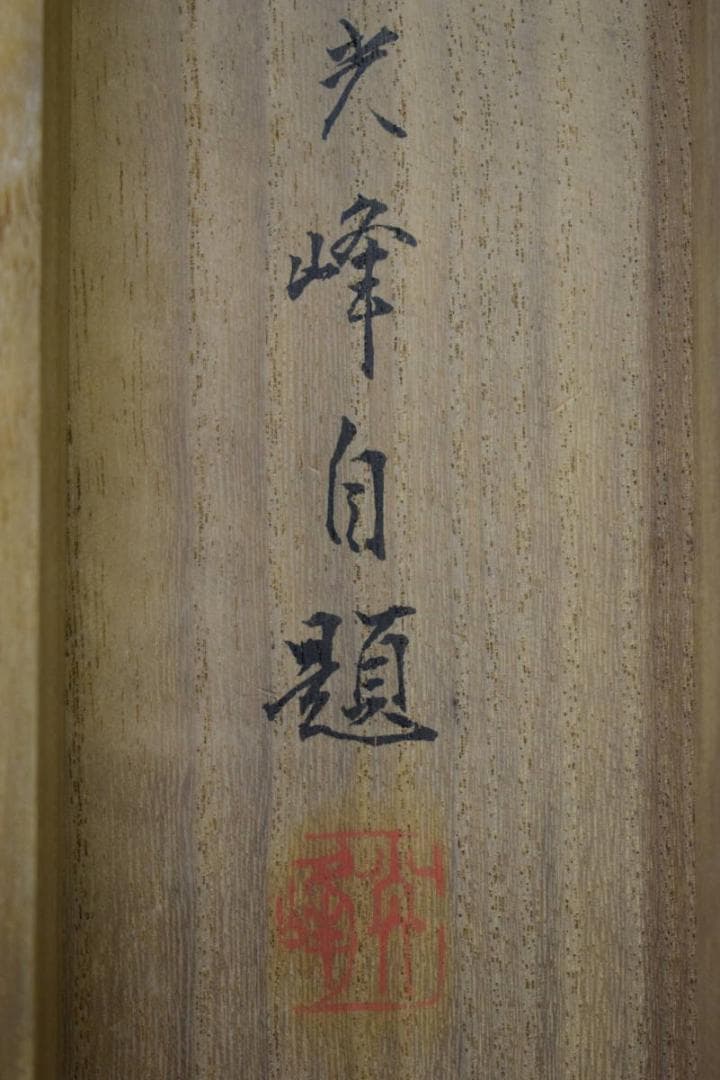 光峰自題